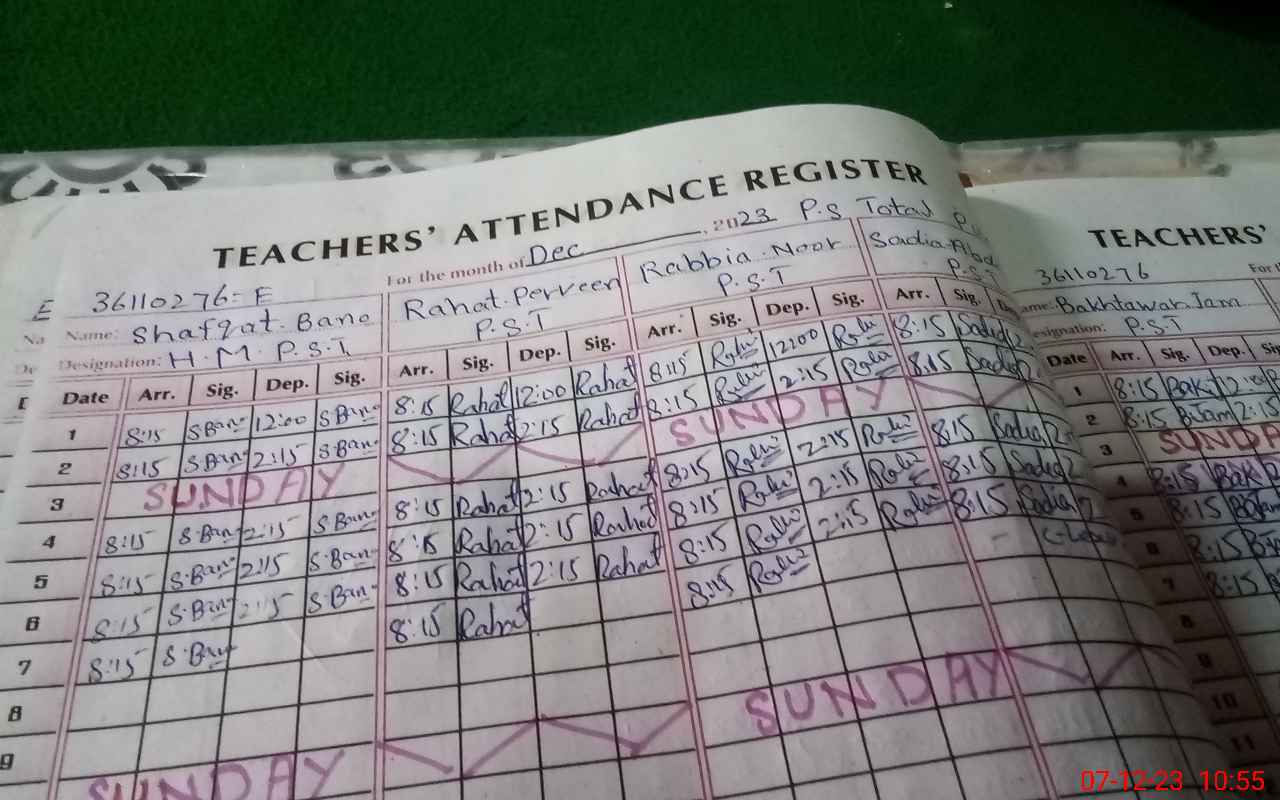 TEACHERS' ATTENDANCE REGISTER
For the month of Dec, 2023 P.S Total
36110276-E
Name: Shafqat.Bano Rahat.Perveen Rabbia.Noor Sadia
Designation: H.M.P.S.T P.S.T P.S.T P.S.T
Date Arr. Sig. Dep. Sig. Arr. Sig. Dep. Sig. Arr. Sig. Dep. Sig. Arr. Sig.
1 8:15 S.Bano 12:00 S.Bano 8:15 Rahat 12:00 Rahat 8:15 Rabi 12:00 Rabi 8:15 Sadia
2 8:15 S.Bano 2:15 S.Bano 8:15 Rahat 2:15 Rahat 8:15 Rabi 2:15 Rabi 8:15 Sadia
3 SUNDAY SUNDAY
4 8:15 S.Bano 2:15 S.Bano 8:15 Rahat 2:15 Rahat 8:15 Rabi 2:15 Rabi 8:15 Sadia
5 8:15 S.Bano 2:15 S.Bano 8:15 Rahat 2:15 Rahat 8:15 Rabi 2:15 Rabi 8:15 Sadia
6 8:15 S.Bano 2:15 S.Bano 8:15 Rahat 2:15 Rahat 8:15 Rabi 2:15 Rabi 8:15 Sadia
7 8:15 S.Bano 8:15 Rahat 8:15 Rabi
8
9
SUNDAY SUNDAY
TEACHERS'
36110276
Bakhtawar.Jam
P.S.T
Date Arr. Sig. Dep.
1 8:15
2 8:15 B.Jam 2:15
3 SUNDAY
4 8:15
5 8:15
6 8:15
7 8:15
8
9
10
11
07-12-23 10:55